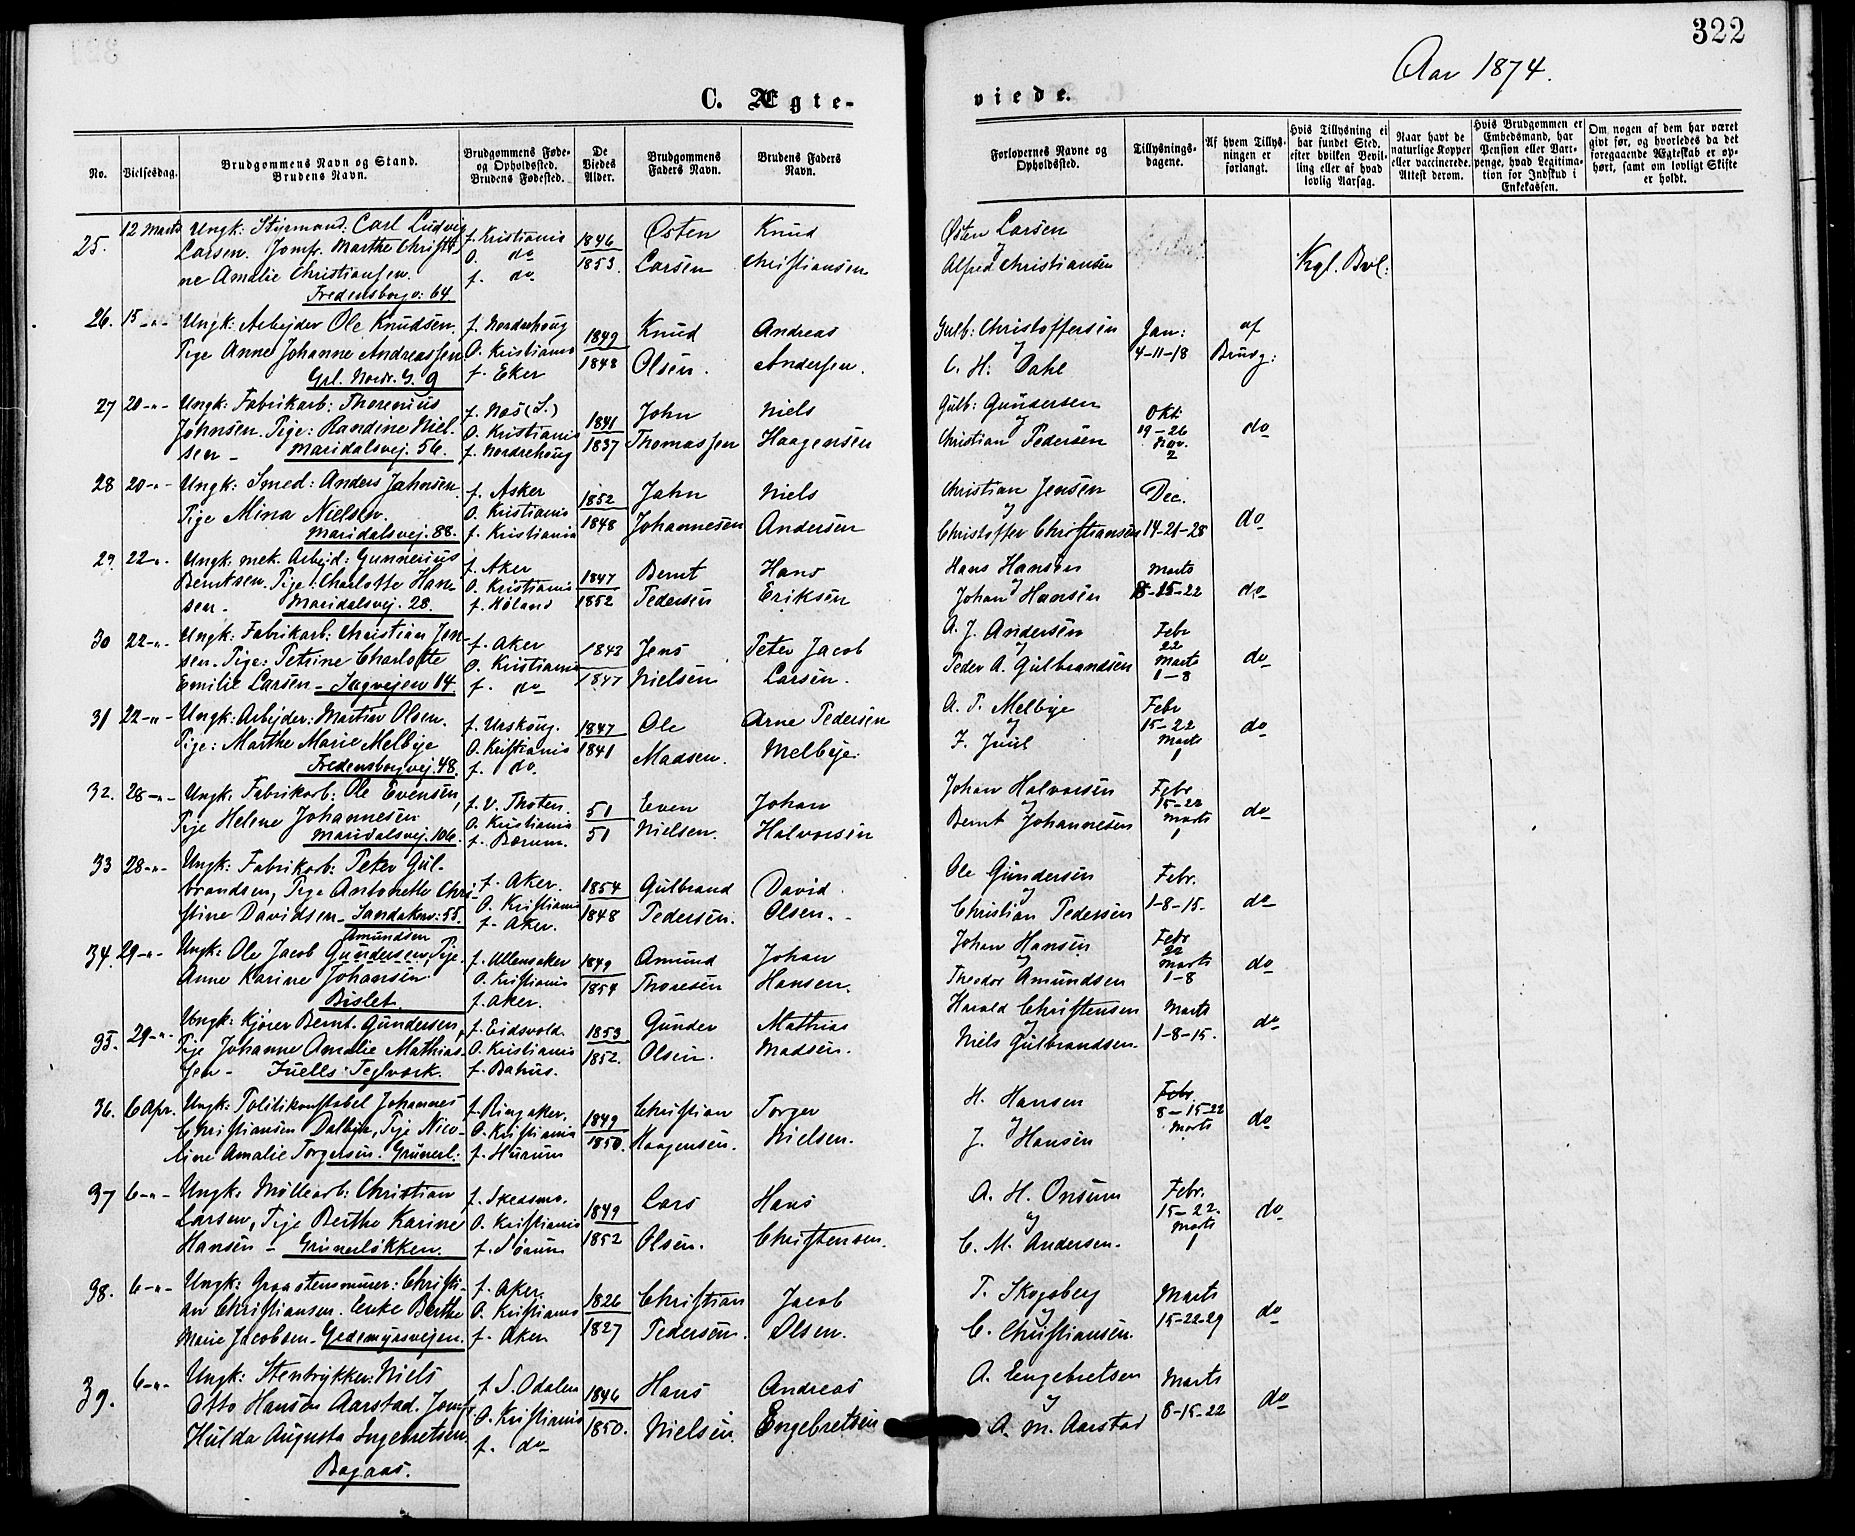 322
Aar 1874.
C. Ægte-
viede.
No.
Vielsesdag.
Brudgommens Navn og Stand.
Brudens Navn.
Brudgommens Føde-
og Opholdssted.
Brudens Fødested.
De
Viedes
Alder.
Brudgommens
Faders Navn.
Brudens Faders
Navn.
Forlovernes Navne og
Opholdssted.
Tillysnings-
dagene.
Af hvem Tillys-
ningen er
forlangt.
Hvis Tillysning ei
har fundet Sted,
efter hvilken Bevil-
ling eller af hvad
lovlig Aarsag.
Naar havt de
naturlige Kopper
eller vaccinerede.
Attest derom.
Hvis Brudgommen er
Embedsmand, har
Pension eller Vart-
penge, hvad Legitima-
tion for Indskud i
Enkekassen.
Om nogen af dem har været
gift før, og hvorledes da det
foregaaende Ægteskab er op-
hørt, samt om lovligt Skifte
er holdt.
25.
12 Marts
Ungk: Styrmand: Carl Ludvig
Larsen. Jomfr. Marthe Christi-
ne Amalie Christiansen.
Fredensborgv: 64
f. Kristiania
O. do
f. do
1846
1853.
Østen
Larsen
Knud
Christiansen
Østen Larsen
og
Alfred Christiansen
Kgl. Bvl:
26.
15-"-
Ungk: Arbejder Ole Knudsen.
Pige Anne Johanne Andreassen
Grl. Nordr. G. 9
f. Norderhoug
O. Kristiania
f. Eker
1849
1848
Knud
Olsen.
Andreas
Andersen.
Gulb: Christoffersen
og
C. H. Dahl
Jan:
4-11-18
af
Brudg:
27
20-"-
Ungk: Fabrikarb: Thorenius
Johnsen. Pige: Randine Niel-
sen -
Maridalsvej. 56.
f. Næs (S.)
O. Kristiania
f. Nordrehoug
1841
1837
John
Thomassen
Niels
Haagensen
Gulb: Gundersen
og
Christian Pedersen
Okt:
19-26
Nov.
2
do
28
20-"-
Ungk: Smed: Anders Jahnsen.
Pige Mina Nielsen.
Maridalsvej. 88.
f. Asker
O. Kristiania
f. Kristiania
1852
1848
Jahn
Johannesen
Niels
Andersen
Christian Jensen
og
Christoffer Christiansen
Dec.
14-21-28
do
29
22-"-
Ungk. mek. Arbejd: Gunnerius
Berntsen. Pige: Charlotte Han-
sen -
Maridalsvej. 28.
f. Aker
O. Kristiania
f. Høland
1847
1852
Bernt
Pedersen
Hans
Eriksen
Hans Hansen
og
Johan Hansen
Marts
8-15-22
do
30
22-"-
Ungk: Fabrikarb: Christian Jen-
sen. Pige: Petrine Charlotte
Emilie Larsen - Sagvejen 14.
f. Aker
O. Kristiania
f. do
1843
1847
Jens
Nielsen
Peter Jacob
Larsen.
A. J. Andersen
og
Peder A. Gulbrandsen
Febr
22
Marts
1-8
do
31
22-"-
Ungk: Arbejder: Martin Olsen.
Pige: Marthe Marie Melbye
Fredensborgvej. 48.
f. Urskoug.
O. Kristiania
f. do.
1847
1841
Ole
Madsen.
Arne Pedersen
Melbye.
A. P. Melbye
og
F. Juul
Febr
15-22
Marts
1
do
32.
28-"-
Ungk. Fabrikarb: Ole Evensen,
Pige Helene Johannesen
Maridalsvej. 106.
f. V. Thoten.
O. Kristiania
f. Bærum.
51
51
Even
Nielsen.
Johan
Halvorsen
Johan Halvorsen
og
Bernt Johannesen
Febr
15-22
Marts
1
do
33
28-"-
Ungk: Fabrikarb: Peter Gul-
brandsen, Pige Antonette Chri-
stine Davidsen - Sandakerv: 55.
f. Aker.
O. Kristiania
f. Aker.
1854
1848
Gulbrand
Pedersen.
David.
Olsen.
Ole Gundersen
og
Christian Pedersen
Febr.
1-8-15.
do
34.
29-"-
Amundsen
Ungk: Ole Jacob Gundersen, Pige
Anne Karine Johansen.
Bislet.
f. Ullensaker
O. Kristiania
f. Aker.
1849
1854
Amund
Thoresen
Johan
Hansen.
Johan Hansen
og
Theodor Amundsen
Febr
22
Marts
1-8
do
35.
29-"-
Ungk: Kjører Bernt Gundersen,
Pige Johanne Amalie Mathias-
sen - Juells Teglværk.
f. Eidsvold.
O. Kristiania
f. Bahus.
1853
1852.
Gunder
Olsen.
Mathias
Madsen.
Harald Christensen
og
Niels Gulbrandsen
Marts
1-8-15.
do
36.
6 Apr.
Ungk: Politikonstabel Johannes
Christiansen Dalbyn, Pige Nico-
line Amalie Torgersen. Grünerl:
f. Ringsaker.
O. Kristiania
f. Hurum
1849
1850.
Christian
Haagensen.
Torger
Nielsen.
H. Hansen
og
J. Hansen
Febr.
8-15-22
Marts
do
37
6-"-
Ungk. Møllearb: Christian
Larsen, Pige Berthe Karine
Hansen - Grünerløkken.
f. Skedsmo.
O. Kristiania
f. Sørum
1849
1852
Lars
Olsen.
Hans
Christensen.
A. H. Onsum
og
C. M. Andersen.
Febr.
15-22.
Marts
1
do
38.
6-"-
Ungk: Graastensmurer: Christi-
an Christiansen. Enke Berthe
Marie Jacobsen - Gedemyrsvejen.
f. Aker.
O. Kristiania
f. Aker
1826
1827
Christian
Pedersen.
Jacob
Olsen.
T. Skogsberg
og
C. Christiansen.
Marts
15-22-29
do
39.
6-"-
Ungk: Stentrykker: Niels
Otto Hansen Aarstad. Jomfr
Hulda Augusta Ingebretsen
Bagaas.
f. S. Odalen
O. Kristiania
f. do
1846
1850.
Hans
Nielsen.
Andreas
Engebretsen
A. Engebretsen
og
A. M. Aarstad
Marts
8-15-22
do